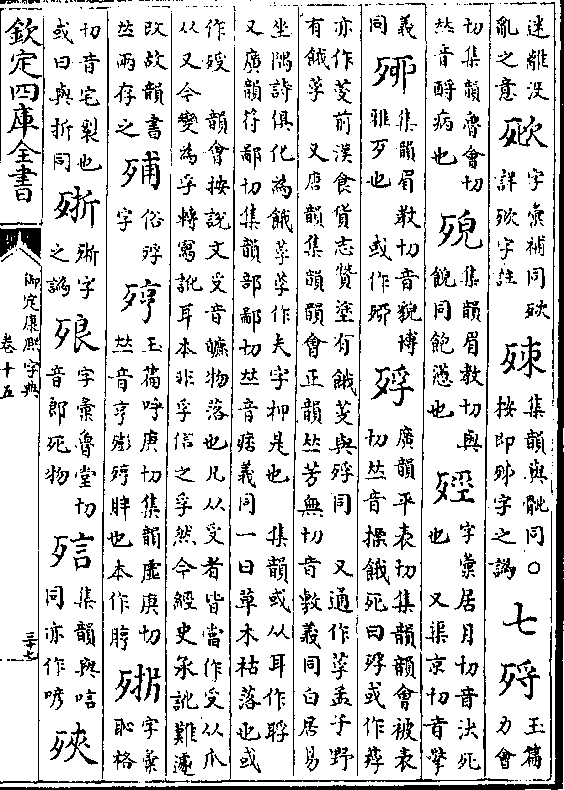 迷離沒
亂之意
㰻
字彙補同㰻
詳㰻字註
殐
集韻與㱡同○
按即殔字之譌
七
㱫
玉篇
力會
切集韻魯會切
𠀤音酹病也
𣨞
集韻眉教切與
䬌同飽懣也
殌
字彙居月切音決死
也 又渠京切音擎
義
同
𣨇
集韻眉教切音貌博
雅歹也 或作
殍
廣韻平表切集韻韻會被表
切𠀤音摽餓死曰殍或作莩
亦作芰前漢食貨志贊塗有餓芰與殍同 又通作莩孟子野
有餓莩 又唐韻集韻韻會正韻𠀤芳無切音敷義同白居易
坐隅詩俱化為餓莩莩作夫字抑是也 集韻或从耳作
又廣韻符鄙切集韻部鄙切𠀤音痞義同 一曰草木枯落也或
作 韻會按說文受音皫物落也凡从受者皆當作受从爪
从又今變為孚轉寫訛耳本非孚信之孚然今經史承訛難遽
改故韻書
𠀤兩存之
俗殍
字
㱶
玉篇呼庚切集韻虛庚切
𠀤音亨膨㱶胖也本作脝
字彙
恥格
切音宅裂也
或曰與折同
字
之譌
㱢
字彙魯堂切
音郎死物
集韻與唁
同亦作喭
㱤
欽定四庫全書
御定康熙字典
卷十五
三十七